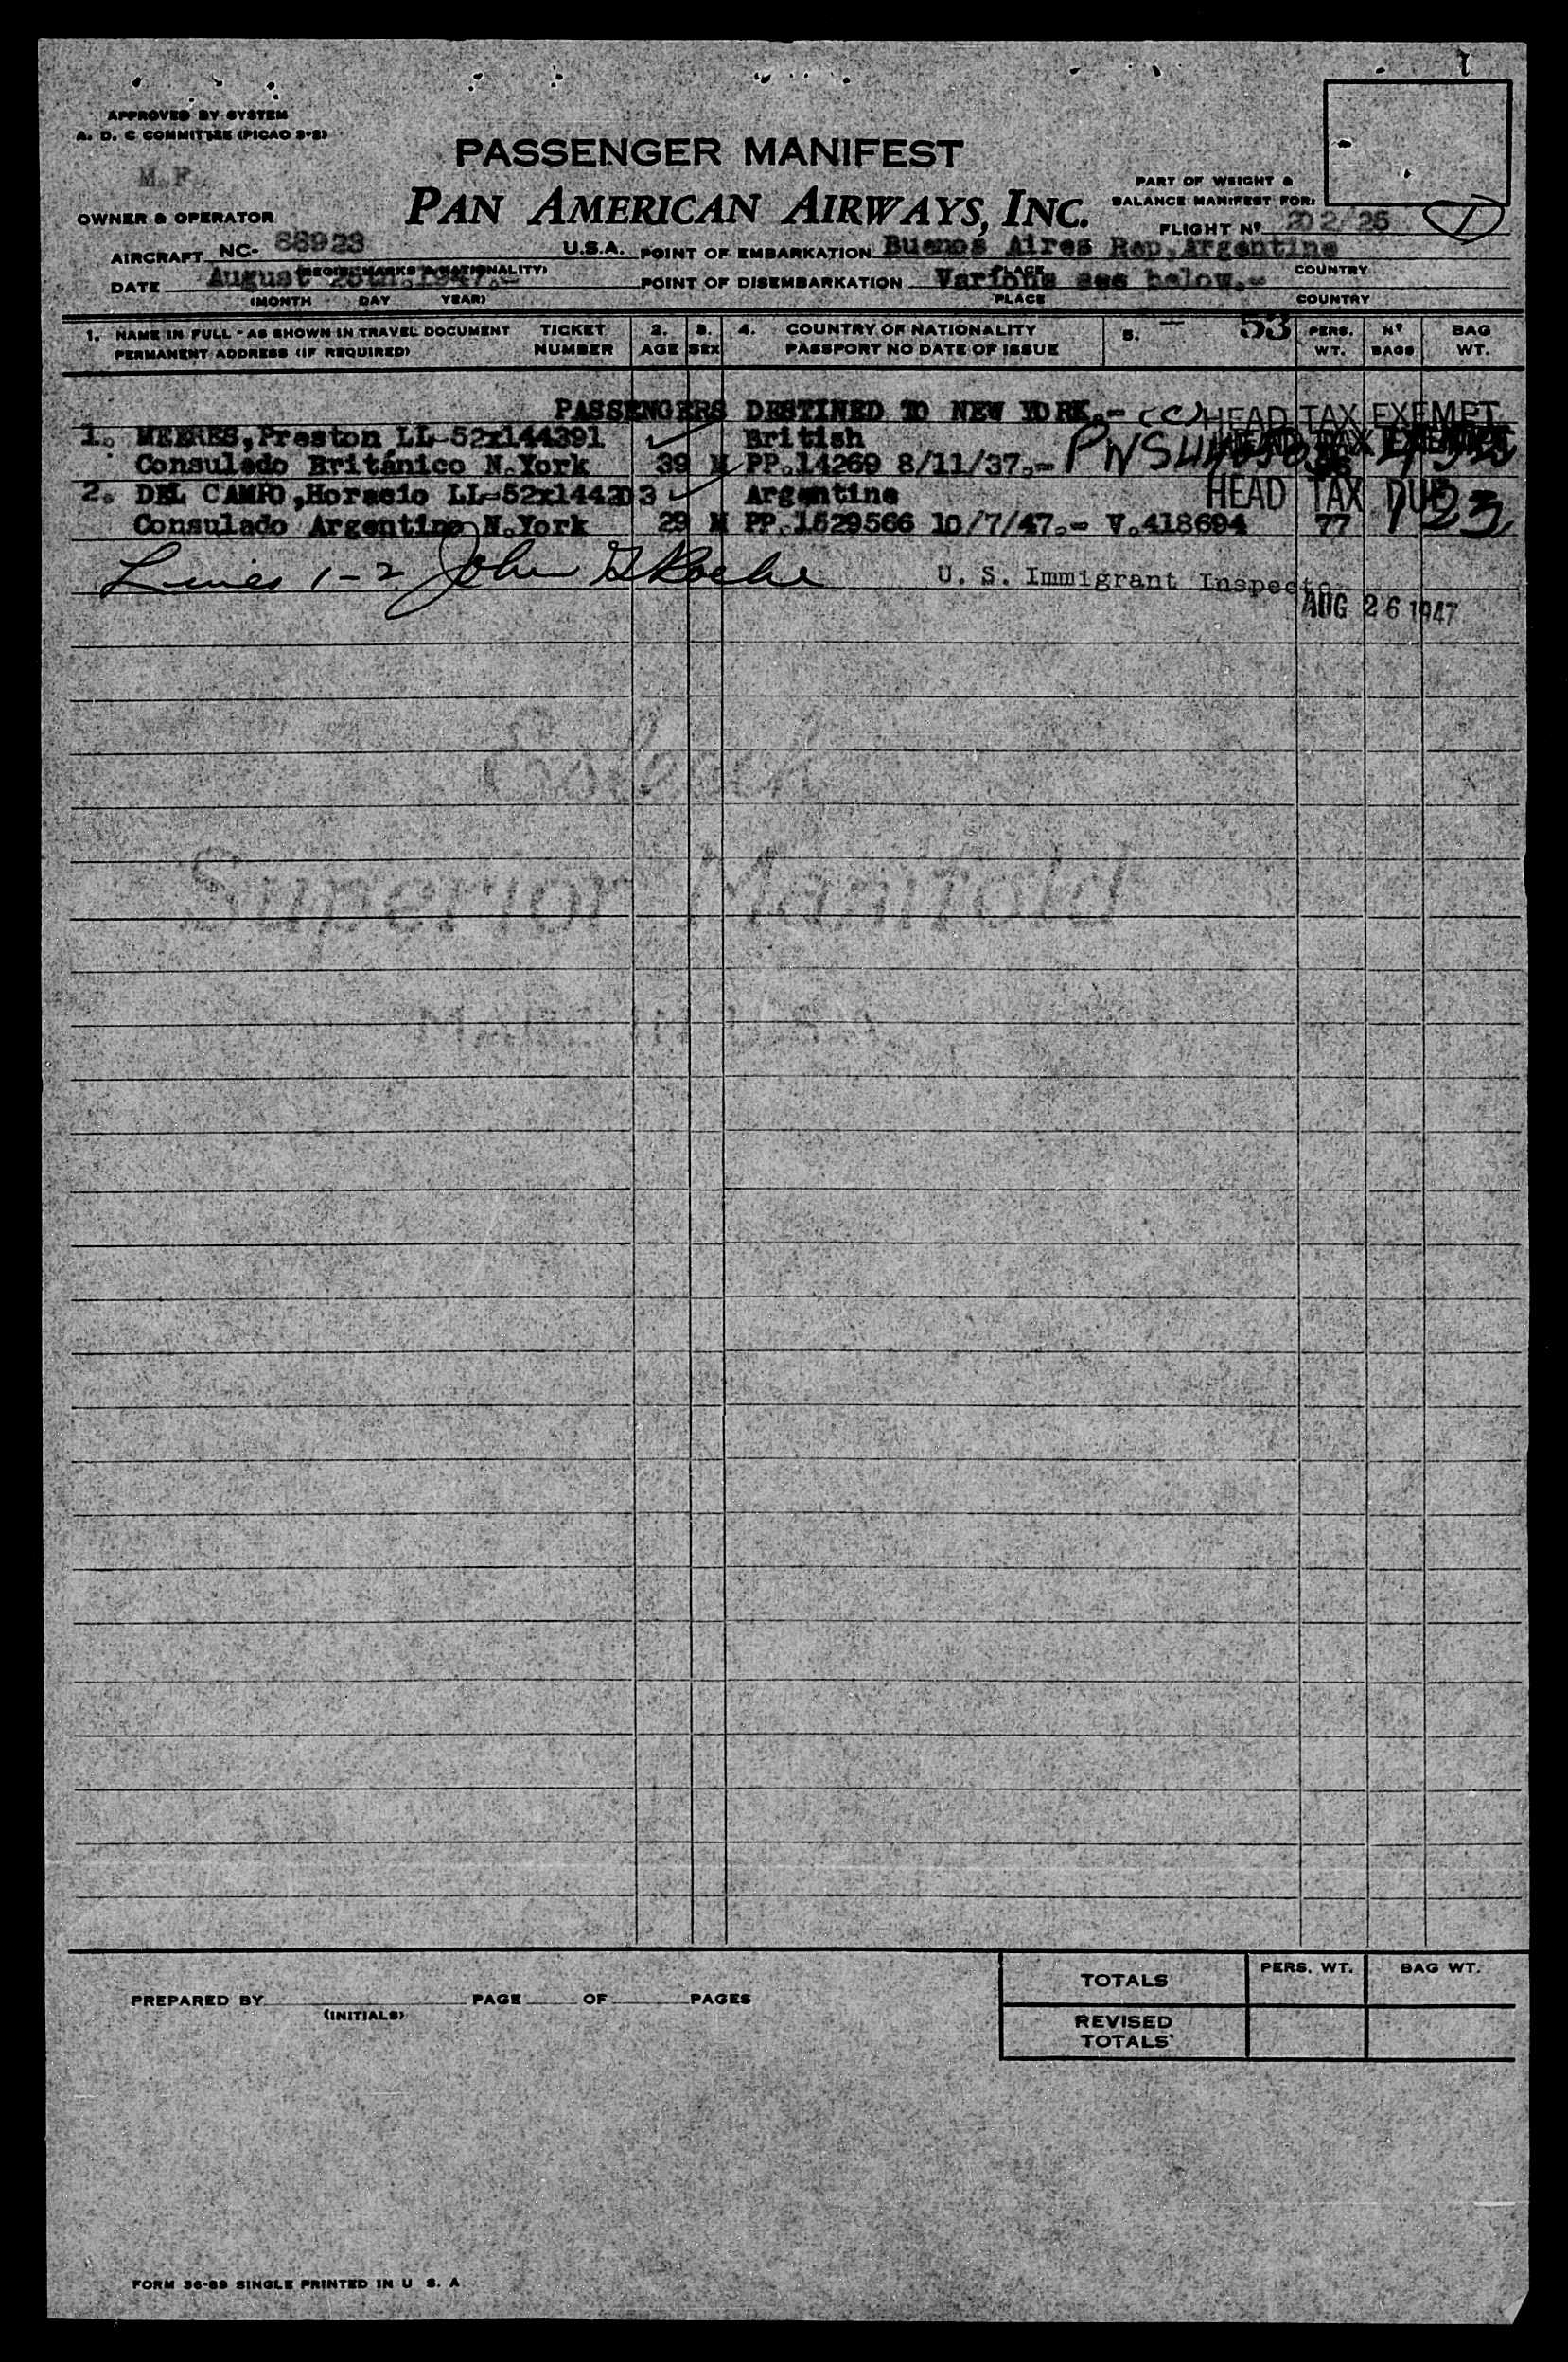 APPROVED BY SYSTEM
A. D. C COMMITTEE (PICAO 2-2)
PASSENGER MANIFEST
M.F.
PART OF WEIGHT &
BALANCE MANIFEST FOR:
OWNER & OPERATOR
PAN AMERICAN AIRWAYS, INC.
FLIGHT Nº 202/25
1
AIRCRAFT NC- 88923 U.S.A. POINT OF EMBARKATION Buenos Aires Rep.Argentina
(REGIS. MARKS & NATIONALITY) PLACE COUNTRY
DATE August 25th.1947.- POINT OF DISEMBARKATION Various see below.-
(MONTH DAY YEAR) PLACE COUNTRY
1. NAME IN FULL - AS SHOWN IN TRAVEL DOCUMENT TICKET 2. 3. 4. COUNTRY OF NATIONALITY 5. 53 PERS. Nº BAG
PERMANENT ADDRESS (IF REQUIRED) NUMBER AGE SEX PASSPORT NO DATE OF ISSUE WT. BAGS WT.
PASSENGERS DESTINED TO NEW YORK.- (C) HEAD TAX EXEMPT
1. MEERES,Preston LL-52x144391 British
Consulado Británico N.York 39 M PP.14269 8/11/37.-
2. DEL CAMPO,Horacio LL-52x144203 Argentine HEAD TAX DUE
Consulado Argentino N.York 29 M PP.1529566 10/7/47.- V.418694 77 1 23
Lines 1-2 John G Roche U. S. Immigrant Inspector
AUG 26 1947
Esleeck
Superior Manifold
MADE IN U.S.A.
TOTALS PERS. WT. BAG WT.
PREPARED BY PAGE OF PAGES
(INITIALS)
REVISED
TOTALS
FORM 36-89 SINGLE PRINTED IN U S. A